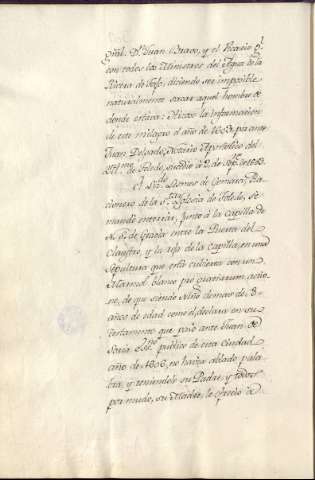 gral. D.n Juan Bravo, y el Vicario g.l
con todos los Ministros del Agua de la
Rivera de Tajo; diciendo ser imposible
naturalmente sacar aquel hombre de
donde estava: Hizose la informacion
de este milagro el año de 1603, por ante
Juan Delgado, Notario Apostolico del
de Toledo, sucedio a 2 de
El Liz.do Leones de Gomara, Ra-
cionero de la S.ta Yglesia de Toledo, se
mando enterrar, junto a la capilla de
N. S. de Gracia entre la Puerta del
Claustro, y la reja de la capilla, en una
Sepultura que està cubierta con un
Marmol blanco pro graciarum actio-
ne, de que siendo Niño demas de 8
años de edad como el declara en su
testamento que pasò ante Juan de
Soria Ess.no publico de esta Ciudad
año de 1606, no havia ablado pala-
bra, y teniendole su Padre, y todos
por mudo, su Madre, le ofrecio à